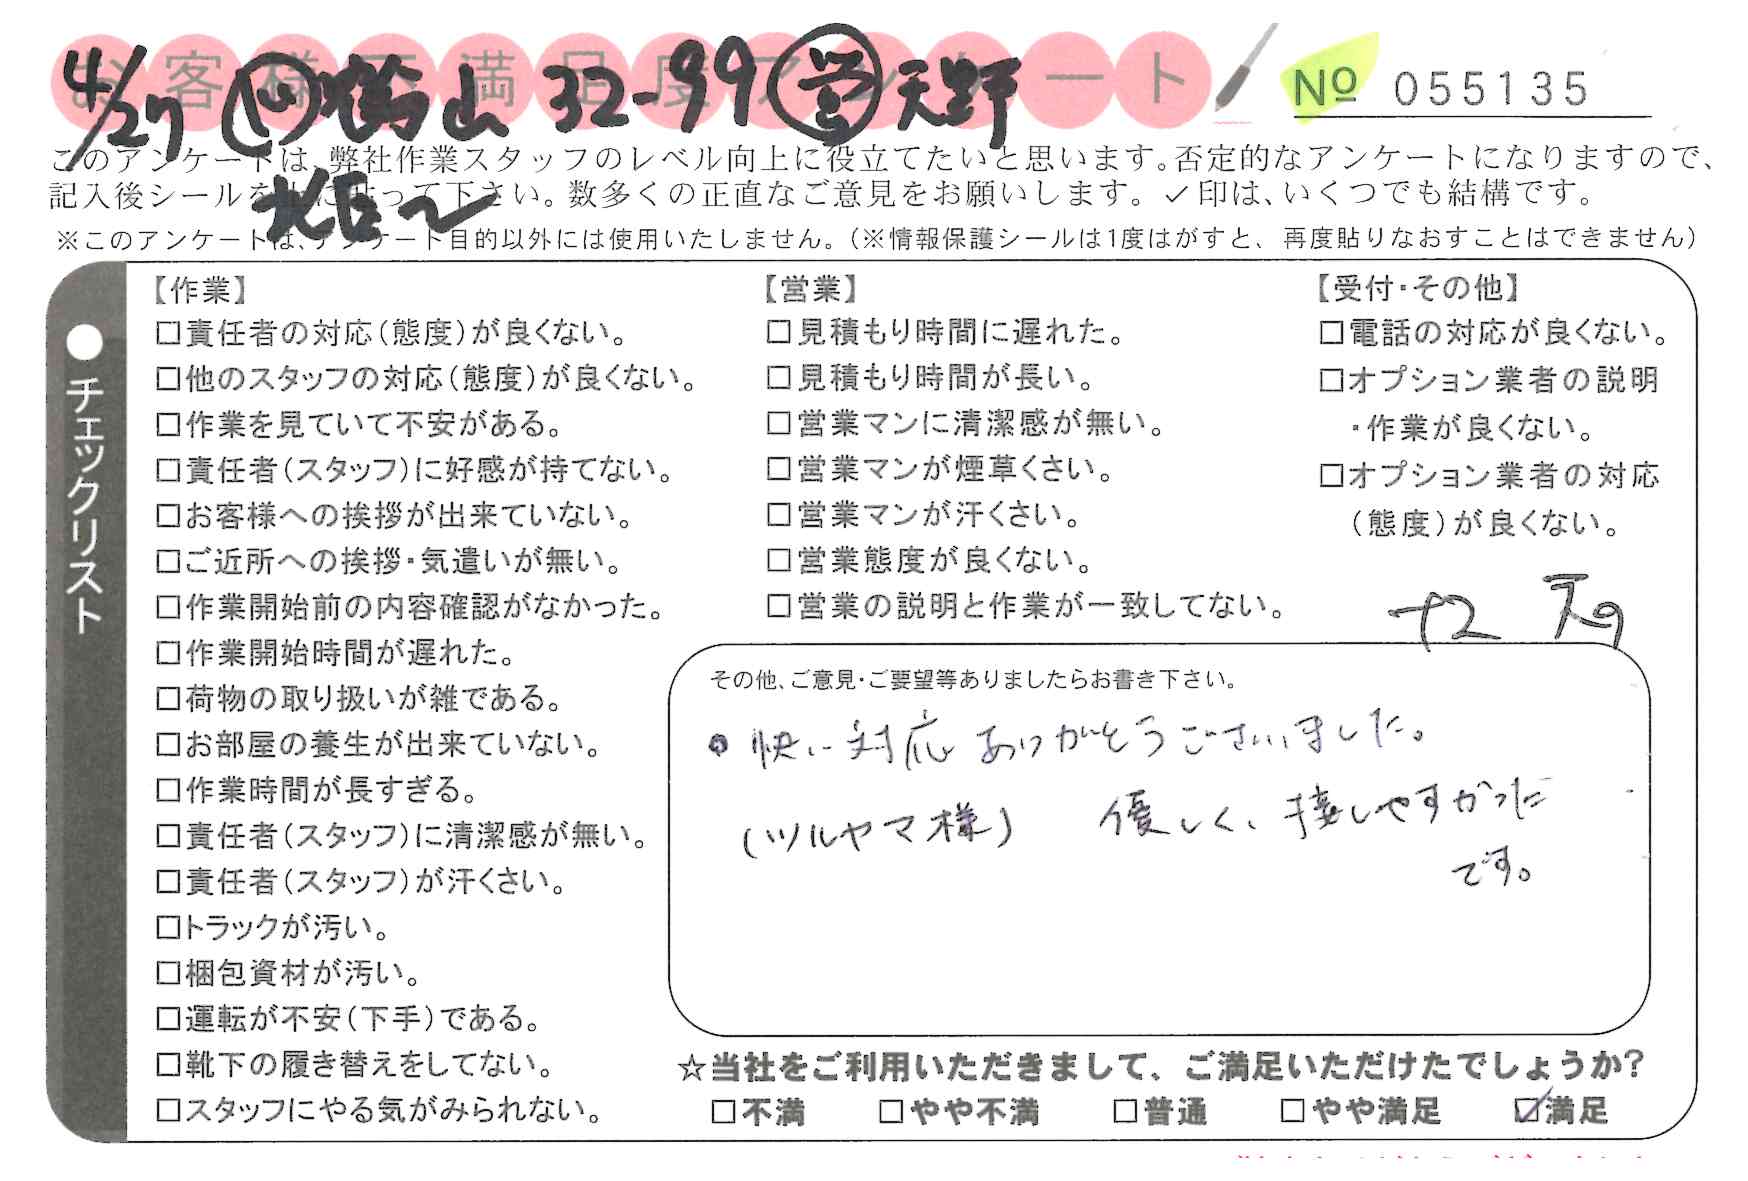 お客様不満足度アンケート
4/27 鶴山 32-99 営 天野
№ 055135
このアンケートは、弊社作業スタッフのレベル向上に役立てたいと思います。否定的なアンケートになりますので、
記入後シールを上に貼って下さい。数多くの正直なご意見をお願いします。✓印は、いくつでも結構です。
※このアンケートは、アンケート目的以外には使用いたしません。（※情報保護シールは1度はがすと、再度貼りなおすことはできません）
●チェックリスト
【作業】
□責任者の対応（態度）が良くない。
□他のスタッフの対応（態度）が良くない。
□作業を見ていて不安がある。
□責任者（スタッフ）に好感が持てない。
□お客様への挨拶が出来ていない。
□ご近所への挨拶・気遣いが無い。
□作業開始前の内容確認がなかった。
□作業開始時間が遅れた。
□荷物の取り扱いが雑である。
□お部屋の養生が出来ていない。
□作業時間が長すぎる。
□責任者（スタッフ）に清潔感が無い。
□責任者（スタッフ）が汗くさい。
□トラックが汚い。
□梱包資材が汚い。
□運転が不安（下手）である。
□靴下の履き替えをしてない。
□スタッフにやる気がみられない。
【営業】
□見積もり時間に遅れた。
□見積もり時間が長い。
□営業マンに清潔感が無い。
□営業マンが煙草くさい。
□営業マンが汗くさい。
□営業態度が良くない。
□営業の説明と作業が一致してない。
【受付・その他】
□電話の対応が良くない。
□オプション業者の説明
・作業が良くない。
□オプション業者の対応
（態度）が良くない。
その他、ご意見・ご要望等ありましたらお書き下さい。
● 快い対応ありがとうございました。
(ツルヤマ様) 優しく、接しやすかった
です。
☆当社をご利用いただきまして、ご満足いただけたでしょうか?
□不満 □やや不満 □普通 □やや満足 ☑満足